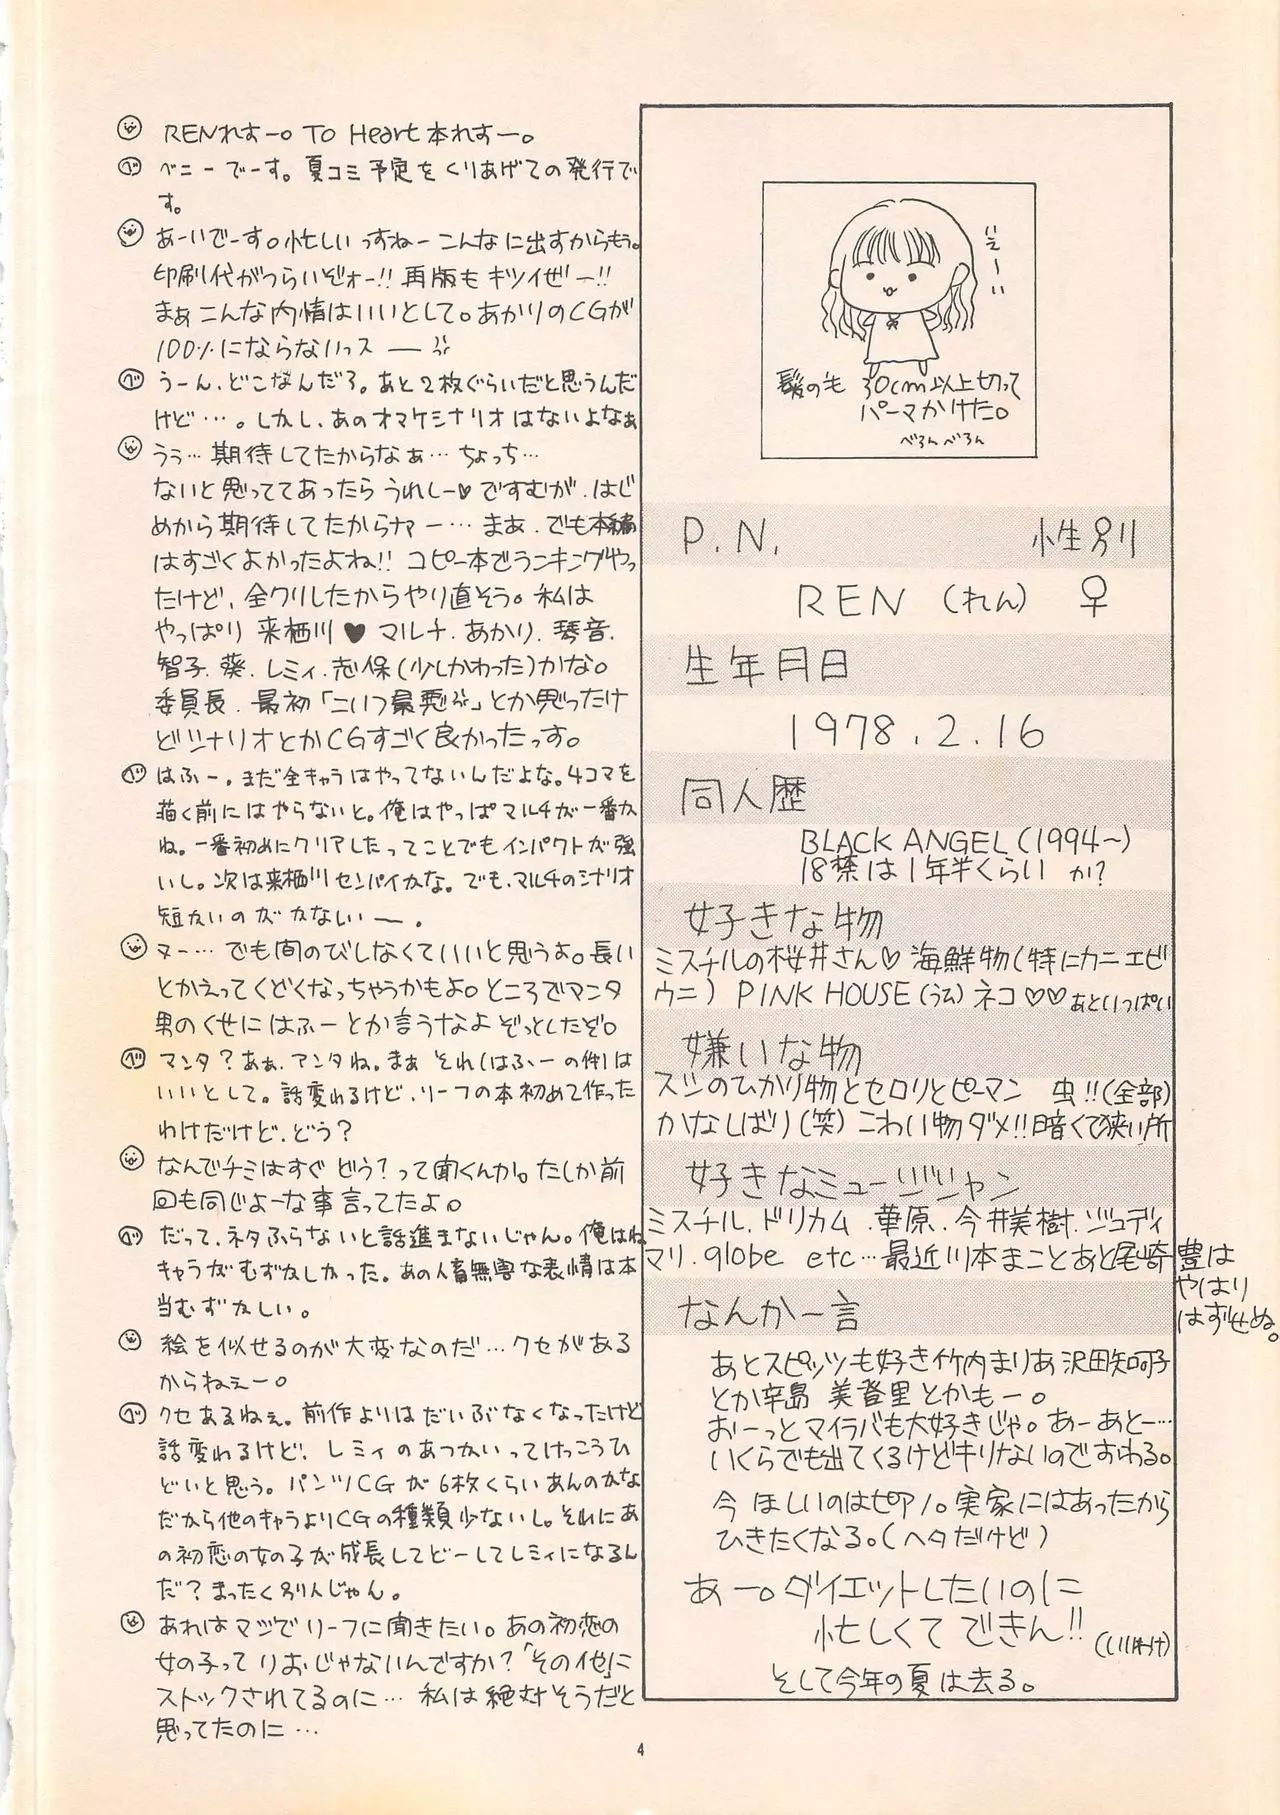 RENれすー。To Heart本れすー。
ベ ベニーでーす。夏コミ予定をくりあげての発行で
す。
あーいでーす。忙しいっすねーこんなに出すからもう。
印刷代がつらいぞォー!! 再版もキツイぜー!!
まぁこんな内情はいいとして。あかりのCGが
100%にならないっスー
ベ うーん、どこなんだろ。あと2枚ぐらいだと思うんだ
けど…。しかし、あのオマケシナリオはないよなぁ
うぅ…期待してたからなぁ…ちょっち…
ないと思っててあったらうれしー♥ですむが、はじ
めから期待してたからナァー…まぁ、でも本編
はすごくよかったよね!! コピー本でランキングやっ
たけど、全クリしたからやり直そう。私は
やっぱり来栖川♥マルチ、あかり、琴音、
智子、葵、レミィ、志保(少しかわった)かな。
委員長、最初「こいつ最悪」とか思ったけ
どシナリオとかCGすごく良かったっす。
ベ はふー、まだ全キャラはやってないんだよな。4コマを
描く前にはやらないと。俺はやっぱマルチが一番カ
ね。一番初めにクリアしたってことでもインパクトが強
いし。次は来栖川センパイかな。でも、マルチのシナリオ
短かいのがかなないー。
ヌー…でも間のびしなくていいと思うよ。長い
とかえってくどくなっちゃうかもよ。ところでマンタ
男のくせにはふーとか言うなよぞっとしたぞ。
ベ マンタ?あぁ、アンタね。まぁそれ(はふーの件)は
いいとして。話変わるけど、リーフの本初めて作った
わけだけど、どう?
なんでチミはすぐどう?って聞くんか。たしか前
回も同じよーな事言ってたよ。
ベ だって、ネタふらないと話進まないじゃん。俺はね
キャラがむずかしかった。あの人畜無害な表情は本
当むずかしい。
絵を似せるのが大変なのだ…クセがある
からねぇー。
ベ クセあるねぇ。前作よりはだいぶなくなったけど
話変わるけど、レミィのあつかいってけっこうひ
どいと思う。パンツCGが6枚くらいあんのかな
だから他のキャラよりCGの種類少ないし。それにあ
の初恋の女の子が成長してどーしてレミィになるん
だ?まったく別人じゃん。
あれはマジでリーフに聞きたい。あの初恋の
女の子ってりおじゃないんですか?「その他」に
ストックされてるのに…私は絶対そうだと
思ってたのに…
いぇーい
髪の毛30cm以上切って
パーマかけた。
べろんべろん
P.N. 性別
REN (れん) ♀
生年月日
1978.2.16
同人歴
BLACK ANGEL(1994〜)
18禁は1年半くらいか?
好きな物
ミスチルの桜井さん♡海鮮物(特にカニエビ
ウニ) PINK HOUSE(うム)ネコ♡♡あといっぱい
嫌いな物
スシのひかり物とセロリとピーマン 虫!!(全部)
かなしばり(笑)こわい物ダメ!!暗くて狭い所
好きなミュージジャン
ミスチル、ドリカム、華原、今井美樹、ジュディ
マリ、globe etc…最近川本まことあと尾崎豊は
やはり
はずせぬ。
なんか一言
あとスピッツも好き竹内まりあ沢田知可子
とか辛島美登里とかもー。
おーっとマイラバも大好きじゃ。あーあとー…
いくらでも出てくるけどキリないのですわる。
今ほしいのはピアノ。実家にはあったから
ひきたくなる。(ヘタだけど)
あー。ダイエットしたいのに
忙しくてできん!!(いいわけ)
そして今年の夏は去る。
4